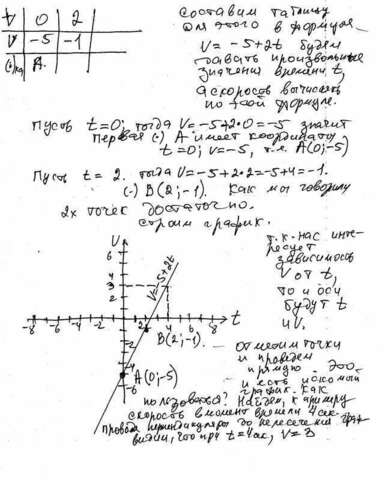 t 0 2
V -5 -1
(·) A.
Составим таблицу
для этого в формуле
V = -5+2t будем
давать произвольные
значения времени t,
а скорость вычислять
по этой формуле.
Пусть t=0; тогда V=-5+2·0=-5 значит
первая (·) A имеет координаты
t=0; v=-5, т.е. A(0;-5)
Пусть t=2. тогда V=-5+2·2=-5+4=-1.
(·) B(2;-1). Как мы говорили
2х точек достаточно.
Строим график.
V
6
4
3
2
V=-5+2t
-8 -6 -4 -2 2 4 6 8 t
-2
-4
-6
B(2;-1).
A(0;-5)
т.к. нас инте-
ресует
зависимость
V от t,
то и оси
будут t
и V.
отметим точки
и проведем
прямую. Это
и есть искомый
график. Как
пользоваться? Найдем, к примеру
скорость в момент времени 4 сек.
проводя перпендикуляры до пересечения
видим, что при t=4сек, V=3